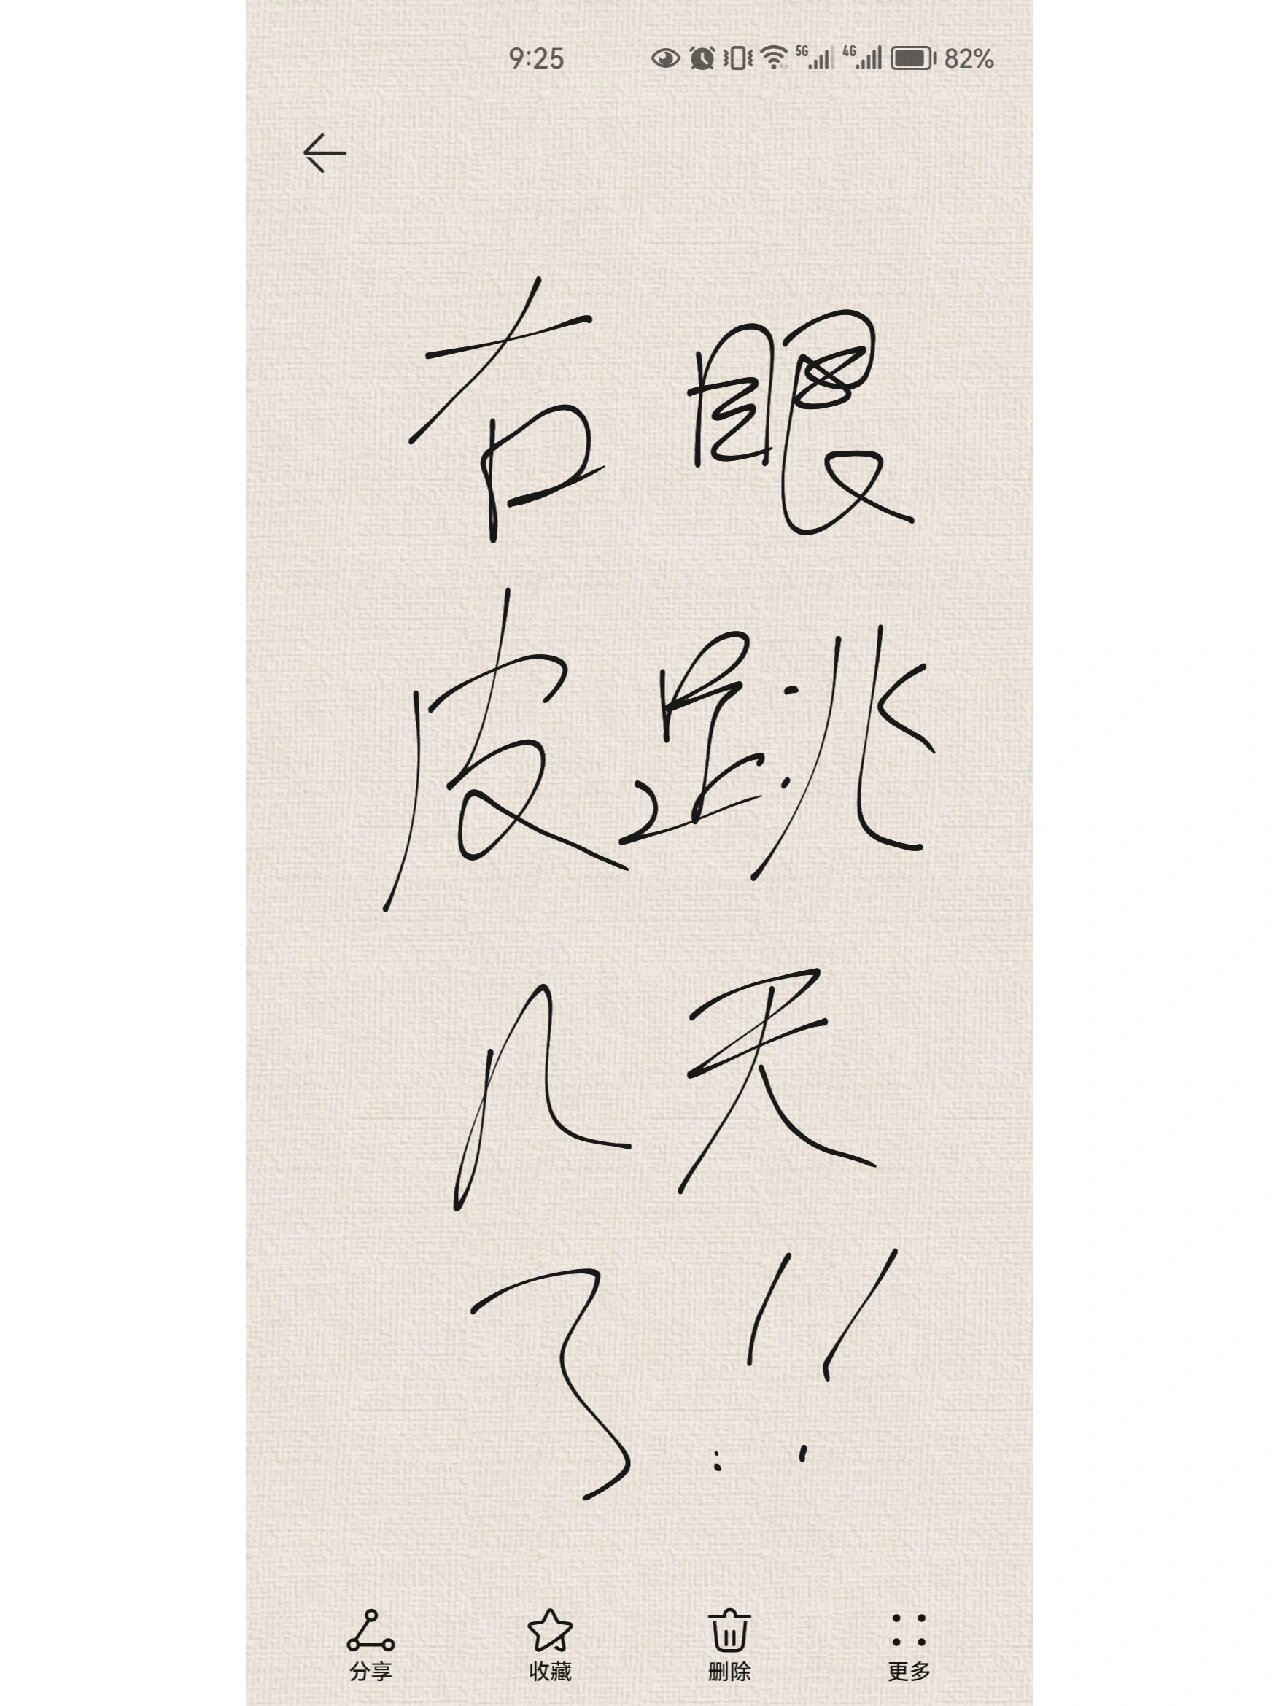 9:25 5G 4G 82%
右眼
皮跳
几天
了!!
分享 收藏 删除 更多